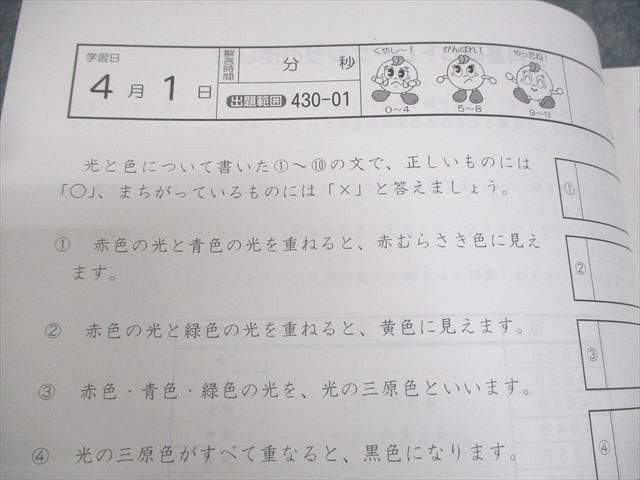 学習日
4月1日
解答時間
分 秒
出題範囲 430-01
くやし〜!
がんばれ!
やったね!
0〜4
5〜8
9〜10
光と色について書いた①〜⑩の文で、正しいものには
「○」、まちがっているものには「×」と答えましょう。
① 赤色の光と青色の光を重ねると、赤むらさき色に見え
ます。
② 赤色の光と緑色の光を重ねると、黄色に見えます。
③ 赤色・青色・緑色の光を、光の三原色といいます。
④ 光の三原色がすべて重なると、黒色になります。
①
②
③
④